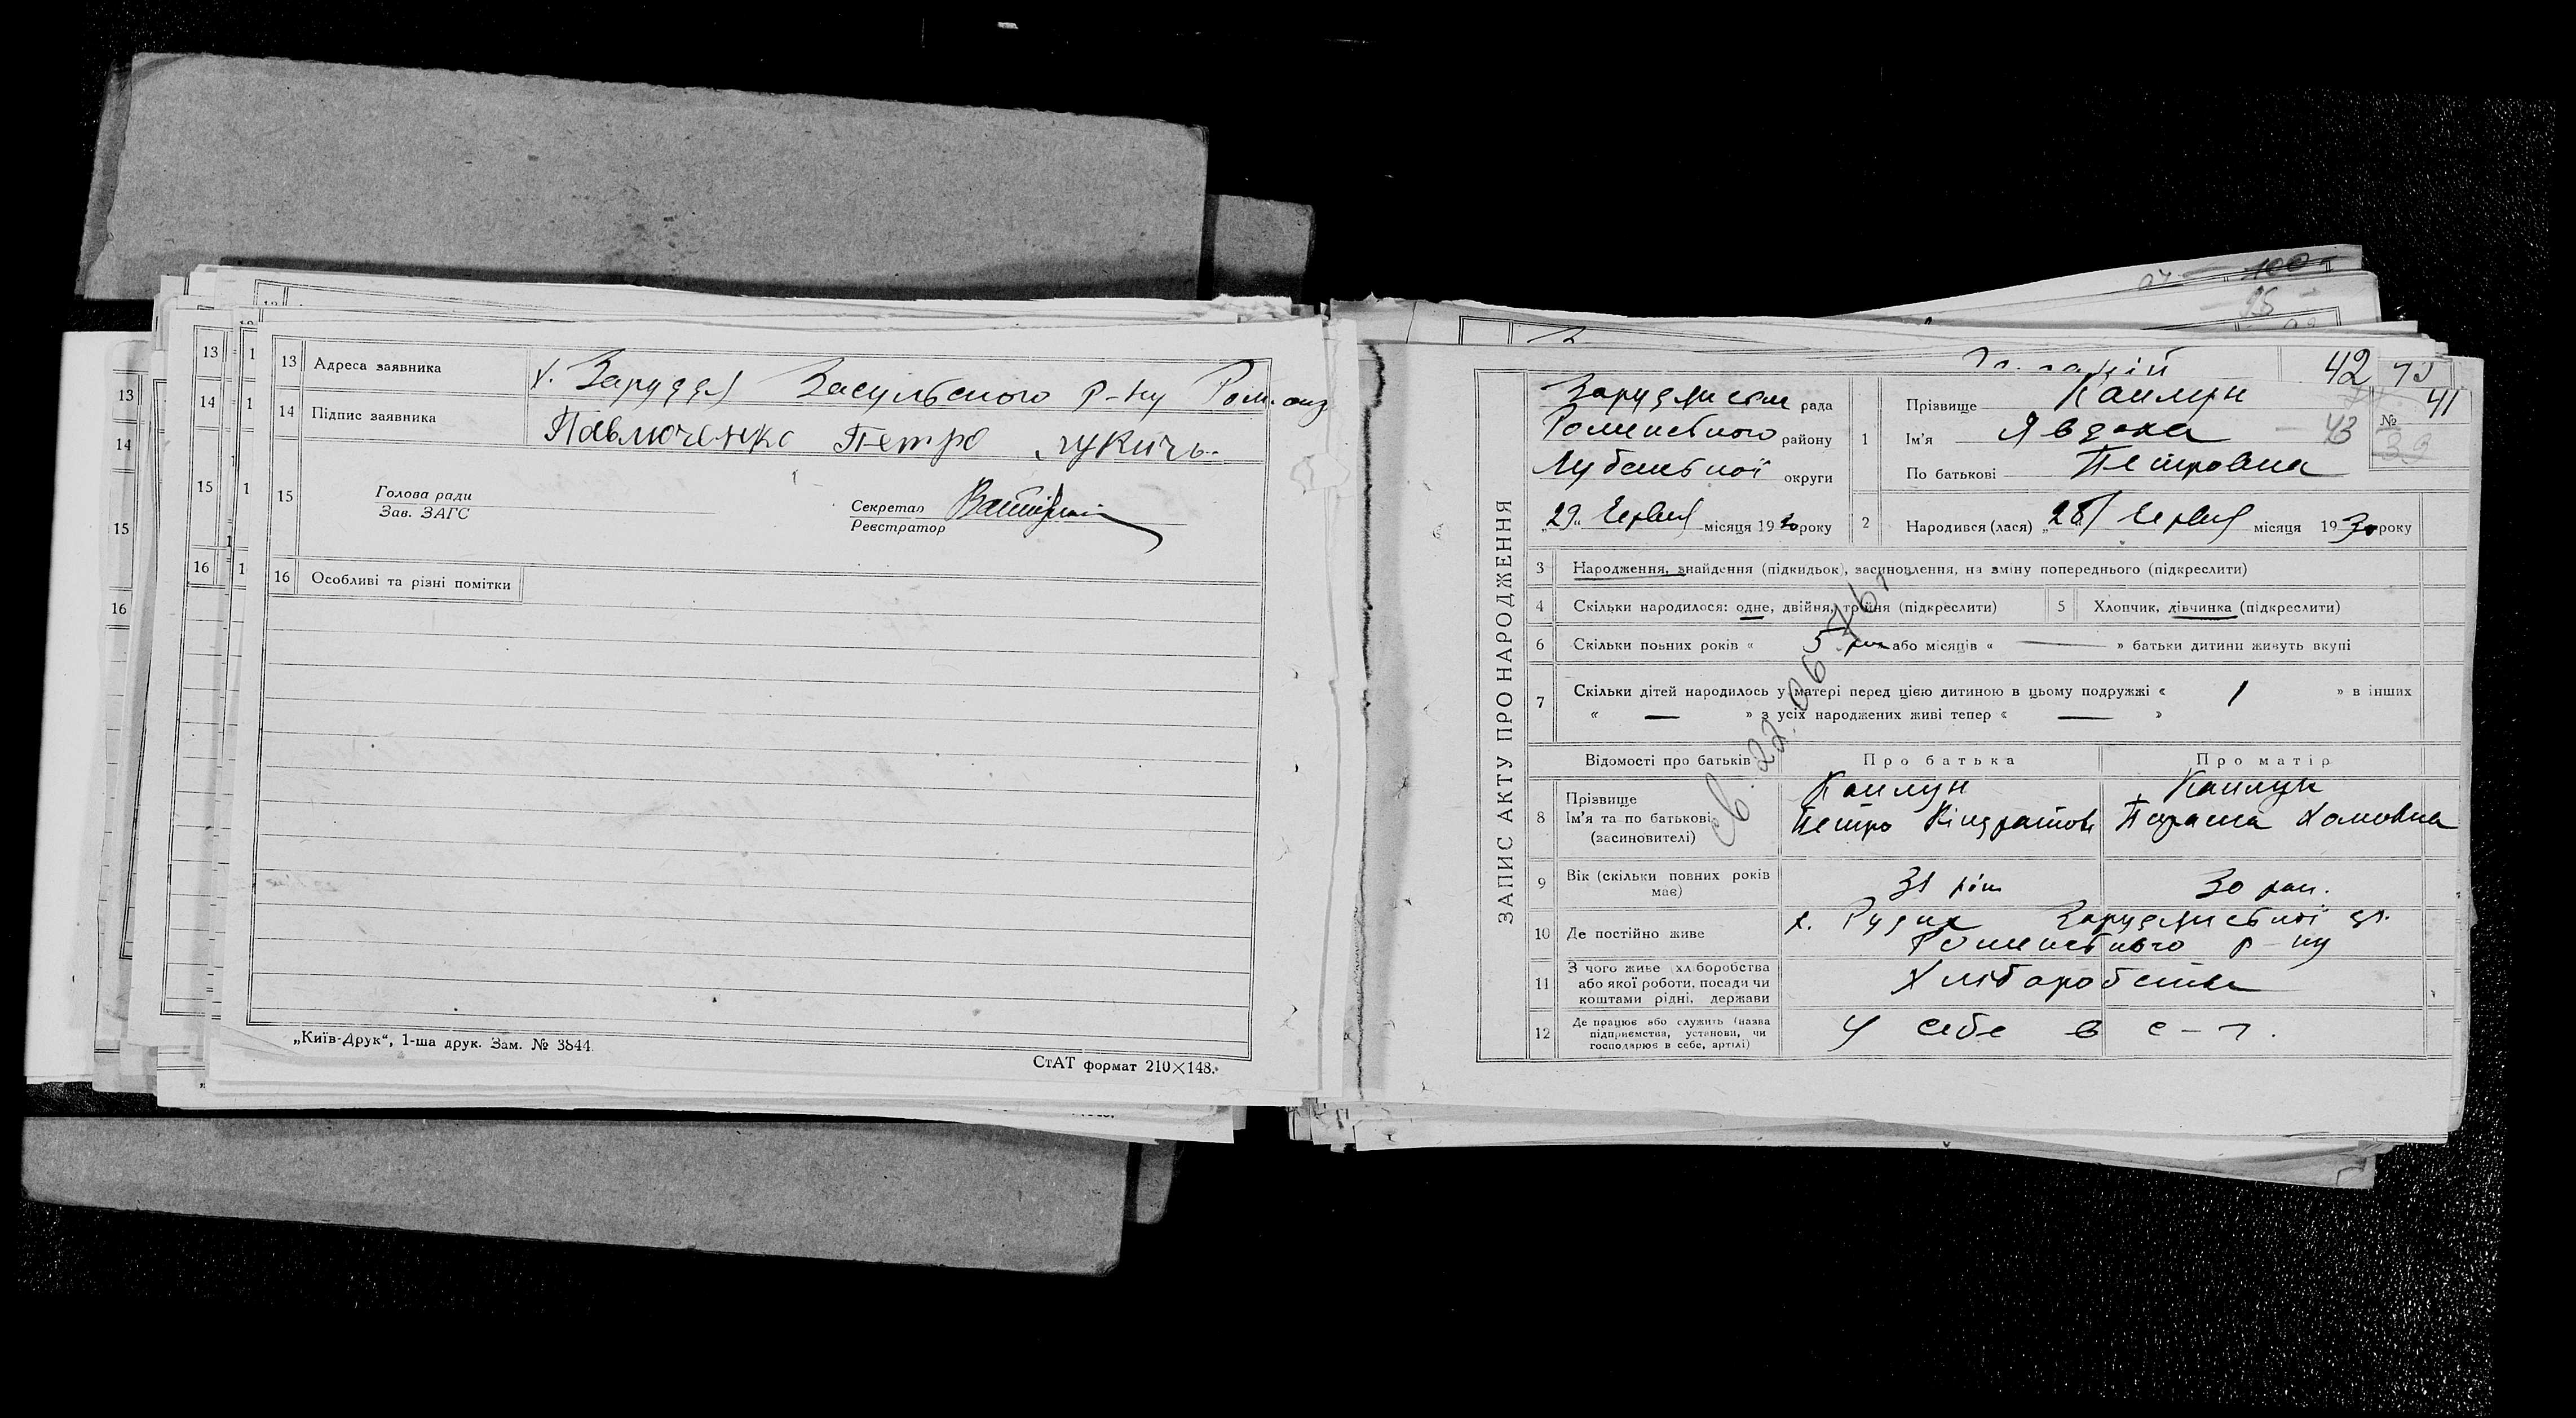 13 Адреса заявника х. Заруддя Засульського р-ну Ром. окр
14 Підпис заявника Павлюченко Петро Лукичь.
15 Голова ради
Зав. ЗАГС
Секретар
Реєстратор
16 Особливі та різні помітки
„Київ-Друк“, 1-ша друк. Зам. № 3844.
СтАТ формат 210×148.
13
14
15
16
13
14
15
16
ЗАПИС АКТУ ПРО НАРОДЖЕННЯ
42
41
43
№
39
рада
Роменського району
Лубенської округи
„29“ Червня місяця 1930 року
1 Прізвище
Ім'я Явдоха
По батькові Петровна
2 Народився (лася) „28“ Червня місяця 1930 року
3 Народження, знайдення (підкидьок), засиновлення, на зміну попереднього (підкреслити)
4 Скільки народилося: одне, двійня, тройня (підкреслити) 5 Хлопчик, дівчинка (підкреслити)
6 Скільки повних років « 5 рок або місяців « — » батьки дитини живуть вкупі
7 Скільки дітей народилось у матері перед цією дитиною в цьому подружжі « 1 » в інших
« — » з усіх народжених живі тепер « — »
Відомості про батьків Про батька Про матір
8 Прізвище
Ім'я та по батькові Петро Кіндратов Параска Хомовна
(засиновителі)
9 Вік (скільки повних років має) 31 рік 30 рок.
10 Де постійно живе х. Рудих
Роменського р-ну
11 З чого живе (хліборобства
або якої роботи, посади чи
коштами рідні, держави
Хліборобства
12 Де працює або служить (назва
підприємства, установи, чи
господарює в себе, артілі)
У себе в с-г.